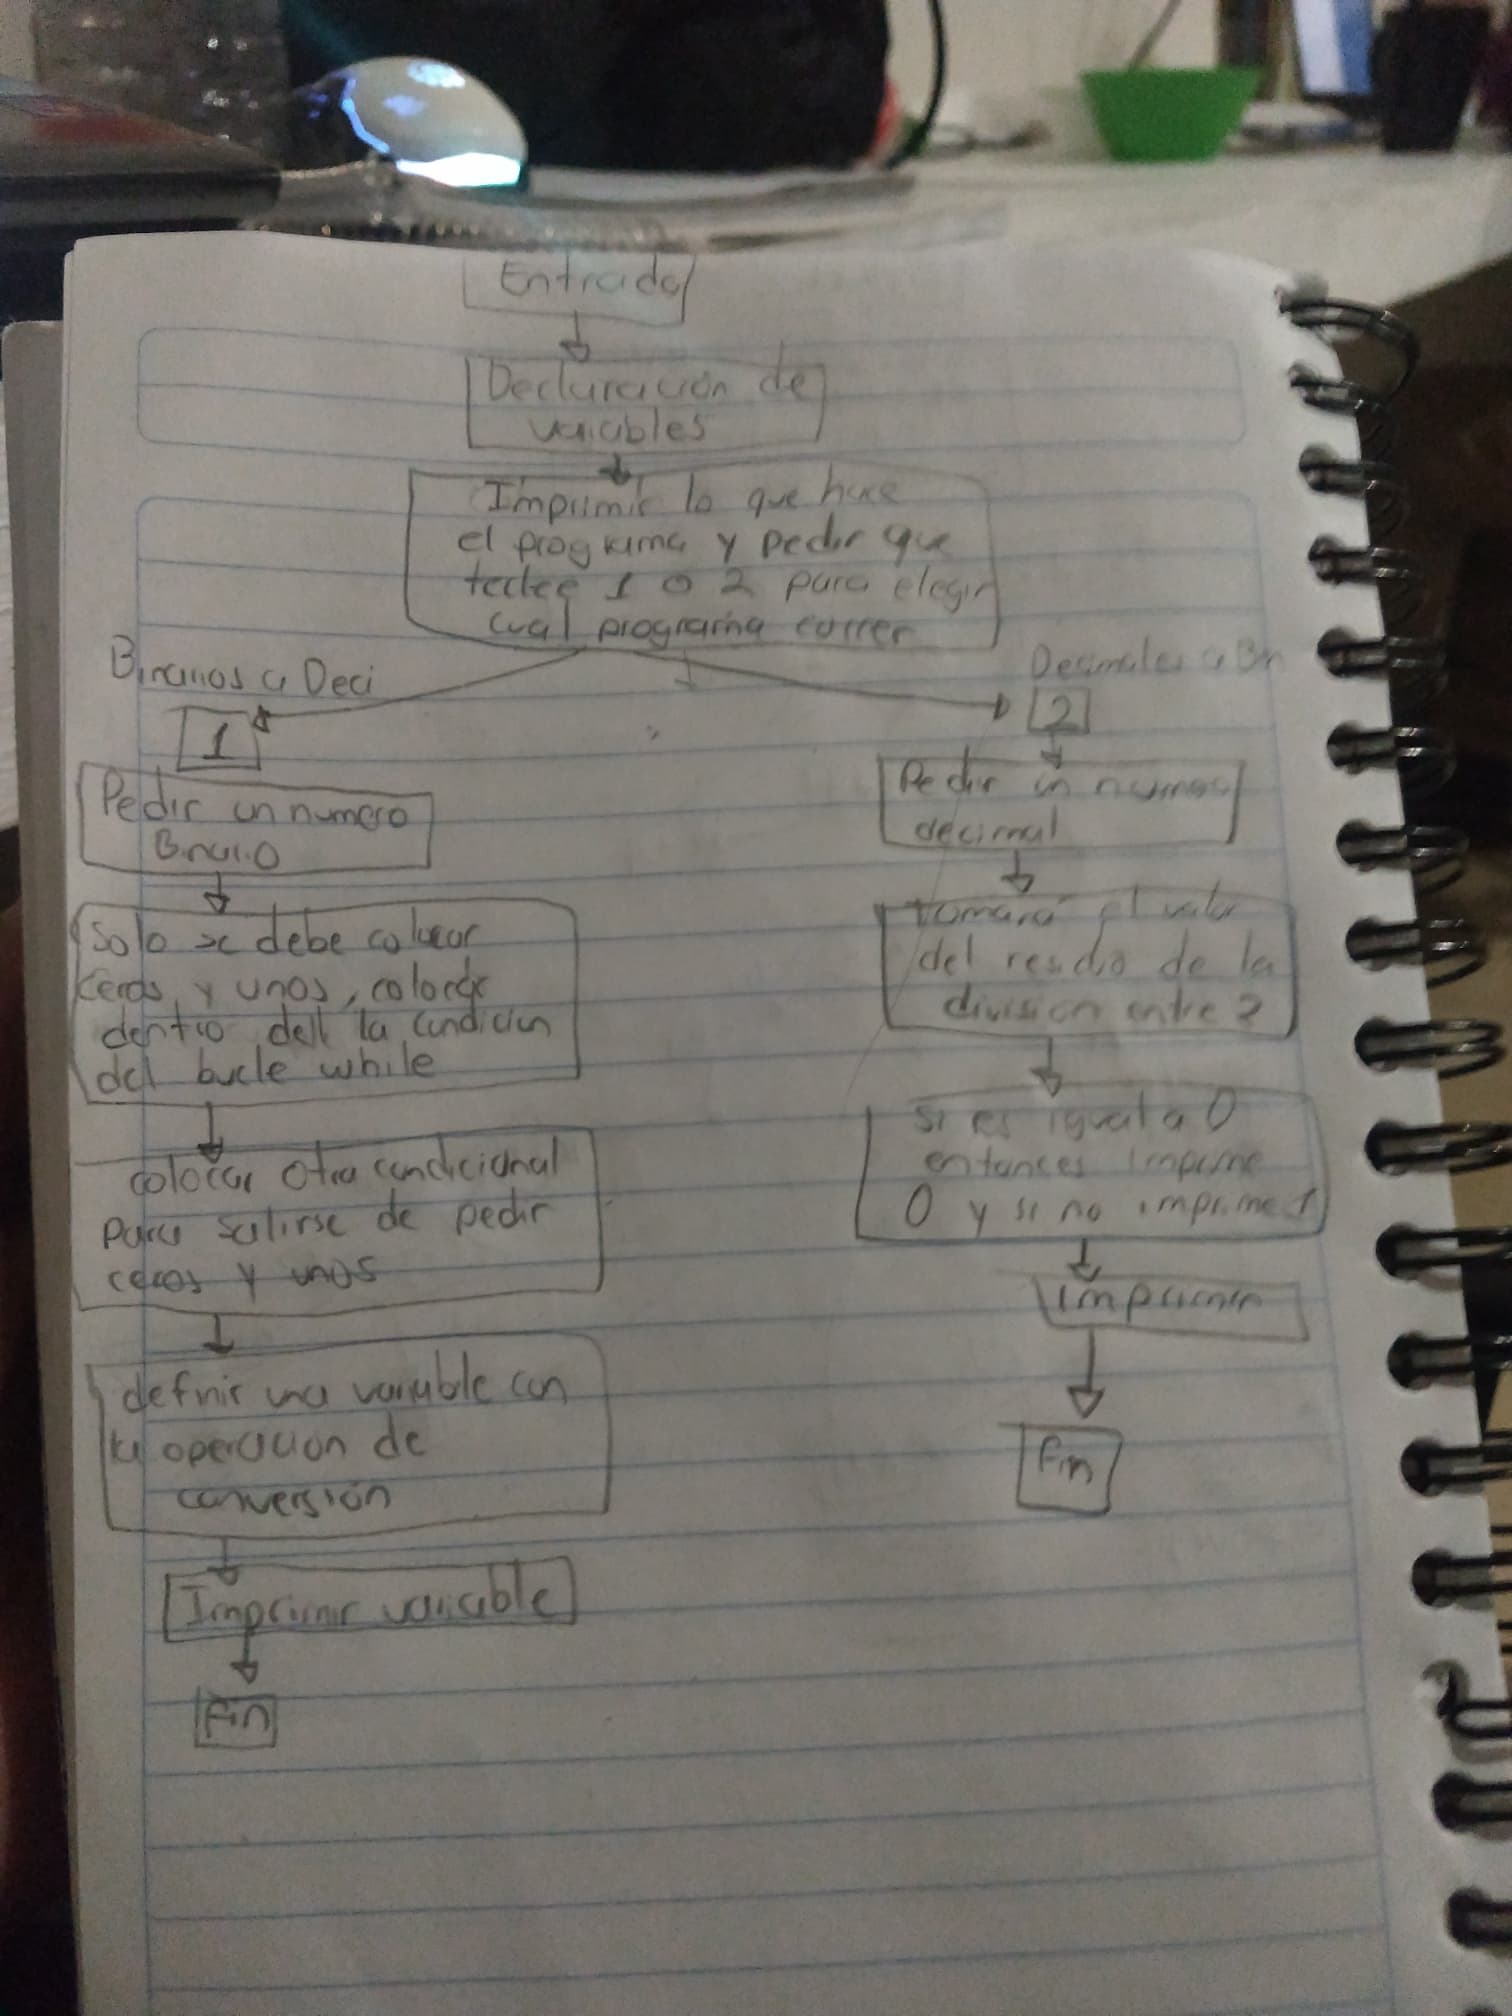 Entrada
Declaración de
variables
Imprimir lo que hace
el programa y pedir que
teclee 1 o 2 para elegir
cual programa correr
Binarios a Deci
1
Pedir un numero
Binario
Solo se debe colocar
ceros y unos, colocar
dentro dell la condicion
del bucle while
colocar otra condicional
para salirse de pedir
ceros y unos
definir una variable con
la operacion de
conversión
Imprimir variable
Fin
Decimales a Bin
2
Pedir un numero
decimal
tomara el valor
del residuo de la
division entre 2
Si es igual a 0
entonces imprime
0 y si no imprime 1
imprimir
Fin